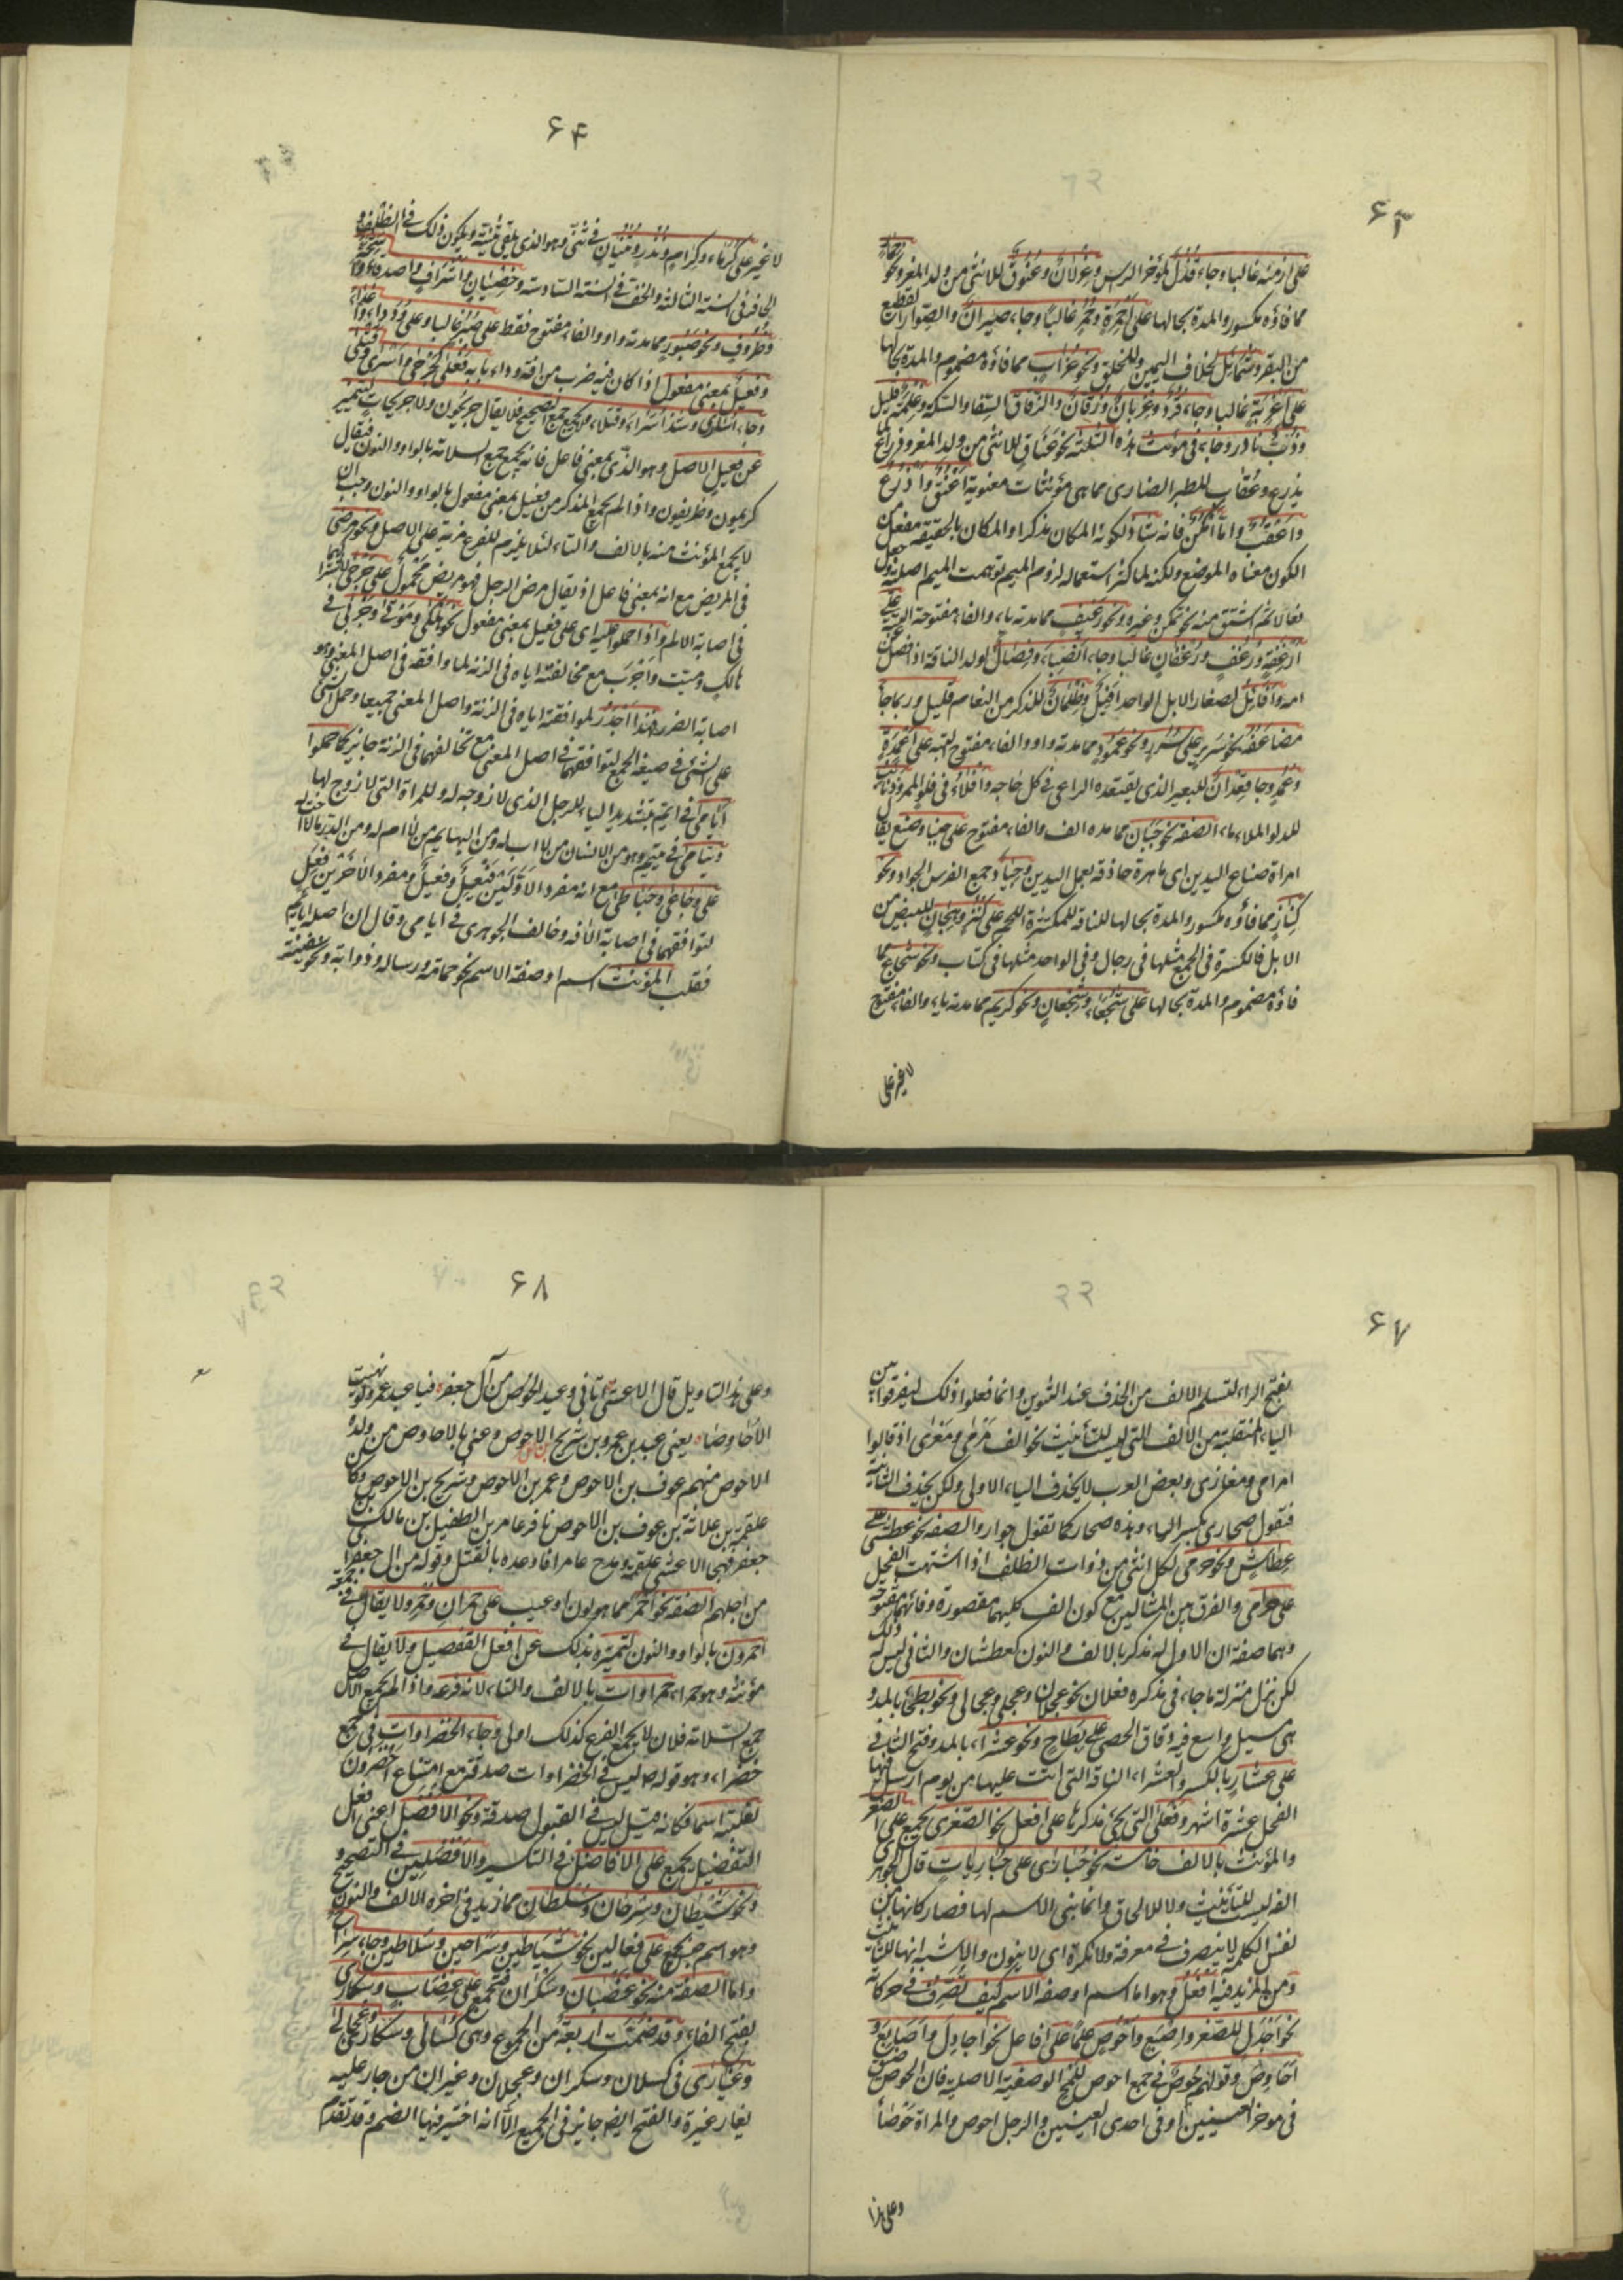 ۶۳
على ازمنة غالبا وجاء قُذُل لمؤخر الراس وغِزْلان وعُنُوق للانثى من ولد المعز ونحو حمار
مما فاؤه مكسور والمدة بحالها على اَحْمِرَة وحُمُر غالبا وجاء صيران والصوار لقطيع
من البقر وشمائل لخلاف اليمين وللخلق ونحو غراب مما فاؤه مضموم والمدة بحالها
على اَغْرِبَة غالبا وجاء قُرُد وغِرْبان وزُقّان والزقاق السقا والسكة وغلمة قليل
وذُبّ نادر وجاء فى مؤنث هذه الثلثة نحو عَنَاق للانثى من ولد المعز وذراع
يذرع وعُقاب للطير الضارى مما هى مؤنثات معنوية اَعْنُق واَذْرُع
واَعْقُب واما اَمْكُن فانه شاذ لكونه المكان مذكرا والمكان بالحقيقة مفعل من
الكون معناه الموضع ولكنه لما كثر استعماله لزوم الميم توهمت الميم اصلية
فقالا ثم اشتق منه نحو تمكن وغيره ونحو رغيف مما مدته ياء والفاء مفتوحة على
اَرْغِفَة ورُغُف ورُغْفان غالبا وجاء اَنْصِباء وفِصال لولد الناقة اذا فصل عن
امه واَفائل لصغار الابل الواحد افيل وظِلْمان للذكر من النعام قليل وربما جاء
مضاعفه نحو سرير على سُرُر ونحو عمود مما مدته واو والفاء مفتوح لتهبه على اَعْمِدة
وعُمُد وجا قِعْدان للبعير الذى يقتعده الراعى فى كل حاجه واَفْلاء فى فلو للمهر وذنائب
للدلو الملاء ماء الصفة نحو جَبان مما مده الف والفاء مفتوح على جبنا وصُنُع يقا
امراة صناع اليدين اى ماهرة حاذقة بعمل اليدين وجِيَاد جمع الفرس الجواد ونحو
كِنَاز مما فاؤه مكسور والمدة بحالها للناقة للمكتنزة اللحم على كُنُز وهِجان للبيض من
الابل فالكسرة فى الجمع مثلها فى رجال وفى الواحد مثلها فى كتاب ونحو شجاع مما
فاؤه مضموم والمدة بحالها على شُجَعاء وشُجْعان ونحو كريم مما مدته ياء والفاء مفتوح
لا غير على
۶۴
لا غير على كُرَماء وكِرام ونُذُر وثُنْيان فى ثنى وهو الذى يلقى ثنيته ويكون ذلك فى الظلف و
الحافر فى السنة الثالثة والخف فى السنة السادسة وخِصْيان واَشْراف واصدقاء
وظُروف ونحو صَبور مما مدته واو والفاء مفتوح فقط على صُبُر غالبا وعلى وُدَداء واعداء
وفعيل بمعنى مفعول اذا كان فيه ضرب من افة وداء بابه فَعْلى كجرحى واَسْرى وقتلى
وجاء اُسارى وشذ اُسَراء وقُتَلاء ولا يجمع جمع التصحيح فلا يقال جريحون ولا جريحات لتميز
عن فعيل الاصل وهو الذى بمعنى فاعل فانه يجمع جمع السلامة بالواو والنون فيقال
كريمون وظريفون واذا لم يجمع المذكر من فعيل بمعنى مفعول بالواو والنون وجب ان
لا يجمع المؤنث منه بالالف والتاء لئلا يلزم للفرع مزية على الاصل ونحو مرضى
فى المريض مع انه بمعنى فاعل اذ يقال مرض الرجل فهو مريض محمول على جرحى
فى اصابة الالم واذا حملوا عليه اى على فعيل بمعنى مفعول نحو هلكى وموتى وجربى فى
هالك وميت واَجْرَب مع مخالفته اياه فى الزنة لما وافقه فى اصل المعنى وهو
اصابة الضرر فهذا اجدر لموافقته اياه فى الزنة واصل المعنى جميعا وحمل الشئ
على الشئ فى صيغة الجمع لتوافقهما فى اصل المعنى مع تخالفهما فى الزنة جايز كما حملوا
ايامى فى ايّم بتشديد الياء للرجل الذى لا زوجة له وللمراة التى لا زوج لها
ويتامى فى يتيم وهو من الانسان من لا اب له ومن البهايم من لا ام له
على وجاعى وحباطى مع ان مفرد الاولين فيعل وفعيل ومفرد الاخرين فعل
لتوافقهما فى اصابة الافة وخالف الجوهرى فى ايامى وقال ان اصله ايايم
فقلب المؤنث اسم او صفة الاسم نحو حمامة ورسالة وذوابة ونحو سفينة
۶۷
بفتح الراء لتسلم الالف من الحذف عند التنوين وانما فعلوا ذلك ليفرقوا بين
الياء المنقلبة من الالف التى ليست للتأنيث نحو الف مَرْمى ومَغْزى اذ قالوا
مرامى ومغازى وبعض العرب لا يحذف الياء الاولى ولكن يحذف الثانية
فتقول صحارى بكسر الراء وهذه صحار كما تقول جوار والصفة نحو عطشى على
عِطاش ونحو حرمى لكل انثى من ذوات الظلف اذا اشتهت الفحل
على حرامى والفرق بين المثالين مع كون الف كليهما مقصورة وفائهما مفتوحة
وهما صفة ان الاول له مذكر بالالف والنون كعطشان والثانى ليس له ذلك
لكن نزل منزلة ما جاء فى مذكره فعلان نحو عجلان وعجلى وعجالى ونحو بطحاء بالمد و
هى مسيل واسع فيه دقاق الحصى على بِطاح ونحو عشراء بالمد وفتح الثانى
على عشار بالكسر والعشراء الناقة التى اتت عليها من يوم ارسل فيها
الفحل عشرة اشهر وفُعْلى التى يجئ مذكرها على افعل نحو الصغرى يجمع على الصُغَر
والمؤنث بالالف خامسة نحو حُبارى على حباريات قال الجوهرى
الفه ليست للتأنيث ولا للالحاق وانما بنى الاسم لها فصار كانها من
نفس الكلمة لا ينصرف فى معرفة ولا نكرة اى لا ينون والاشبه انها للتأنيث
ومن المزيد فيه افعل وهو اما اسم او صفة الاسم كيف تصرف فى حركاته
نحو اَجْدَل للصقر واِصْبَع واَحْوَص علما على افاعل نحو اجادِل واصابع و
احاوِص وقولهم حُوص فى جمع احوص للمح الوصفية الاصلية فان الحوص ضيق
فى موخر العينين او فى احدى العينين والرجل احوص والمراة حوصاء
وعلى هذا
۶۸
وعلى هذا التاويل قال الاعشى اتانى وعيد الحوص من آل جعفر فيا عبد عمرو لو نهيت
الاحاوصا يعنى عبد بن عمرو بن شريح بن الاحوص وعنى بالاحاوص من ولده
الاحوص منهم عوف بن الاحوص وعمر بن الاحوص وشريح بن الاحوص وكان
علقمة بن علاثة بن عوف بن الاحوص نافر عامر بن الطفيل بن مالك بن
جعفر فهجى الاعشى علقمة ومدح عامرا فاوعده بالقتل وقوله من ال جعفر اى
من اجلهم الصفة نحو احمر مما هو لون او عيب على حمران وحُمْر ولا يقال فى جمعه
احمرون بالواو والنون لتميزه بذلك عن افعل التفضيل ولا يقال فى
مؤنثه وهو حمراء حمراوات بالالف والتاء لانه فرعه واذا لم يجمع الاصل
جمع السلامة فلان لا يجمع الفرع كذلك اولى وجاء الخضراوات فى جمع
خضراء وهو قوله ص ليس فى الخضراوات صدقة مع امتناع اخضرون
لغلبته اسما فكانه قيل ليس فى البقول صدقة ونحو الافضل اعنى افعل
التفضيل يجمع على الافاضل فى التكسير والافضلين فى التصحيح
ونحو شَيْطان وسِرحان وسُلطان مما زيد فى اخره الالف والنون
وهو اسم جمع على فعالين نحو شياطين وسراحين وسلاطين وجاء سراح
واما الصفة منه نحو غضبان وسكران فتجمع على غِضاب وسكارى
بفتح الفاء وقد ضمت اربعة من الجموع وهى كُسالى وسُكارى وعُجالى
وغُيارى فى كسلان وسكران وعجلان وغيران من جار عليه
يغار غيرة والفتح ايضا جايز فى الجميع الا انه اختير فيها الضم وقد تقدم